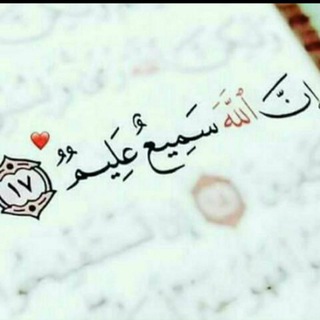 إِنَّ ٱللَّهَ سَمِيعٌ عَلِيمٌ ١٧